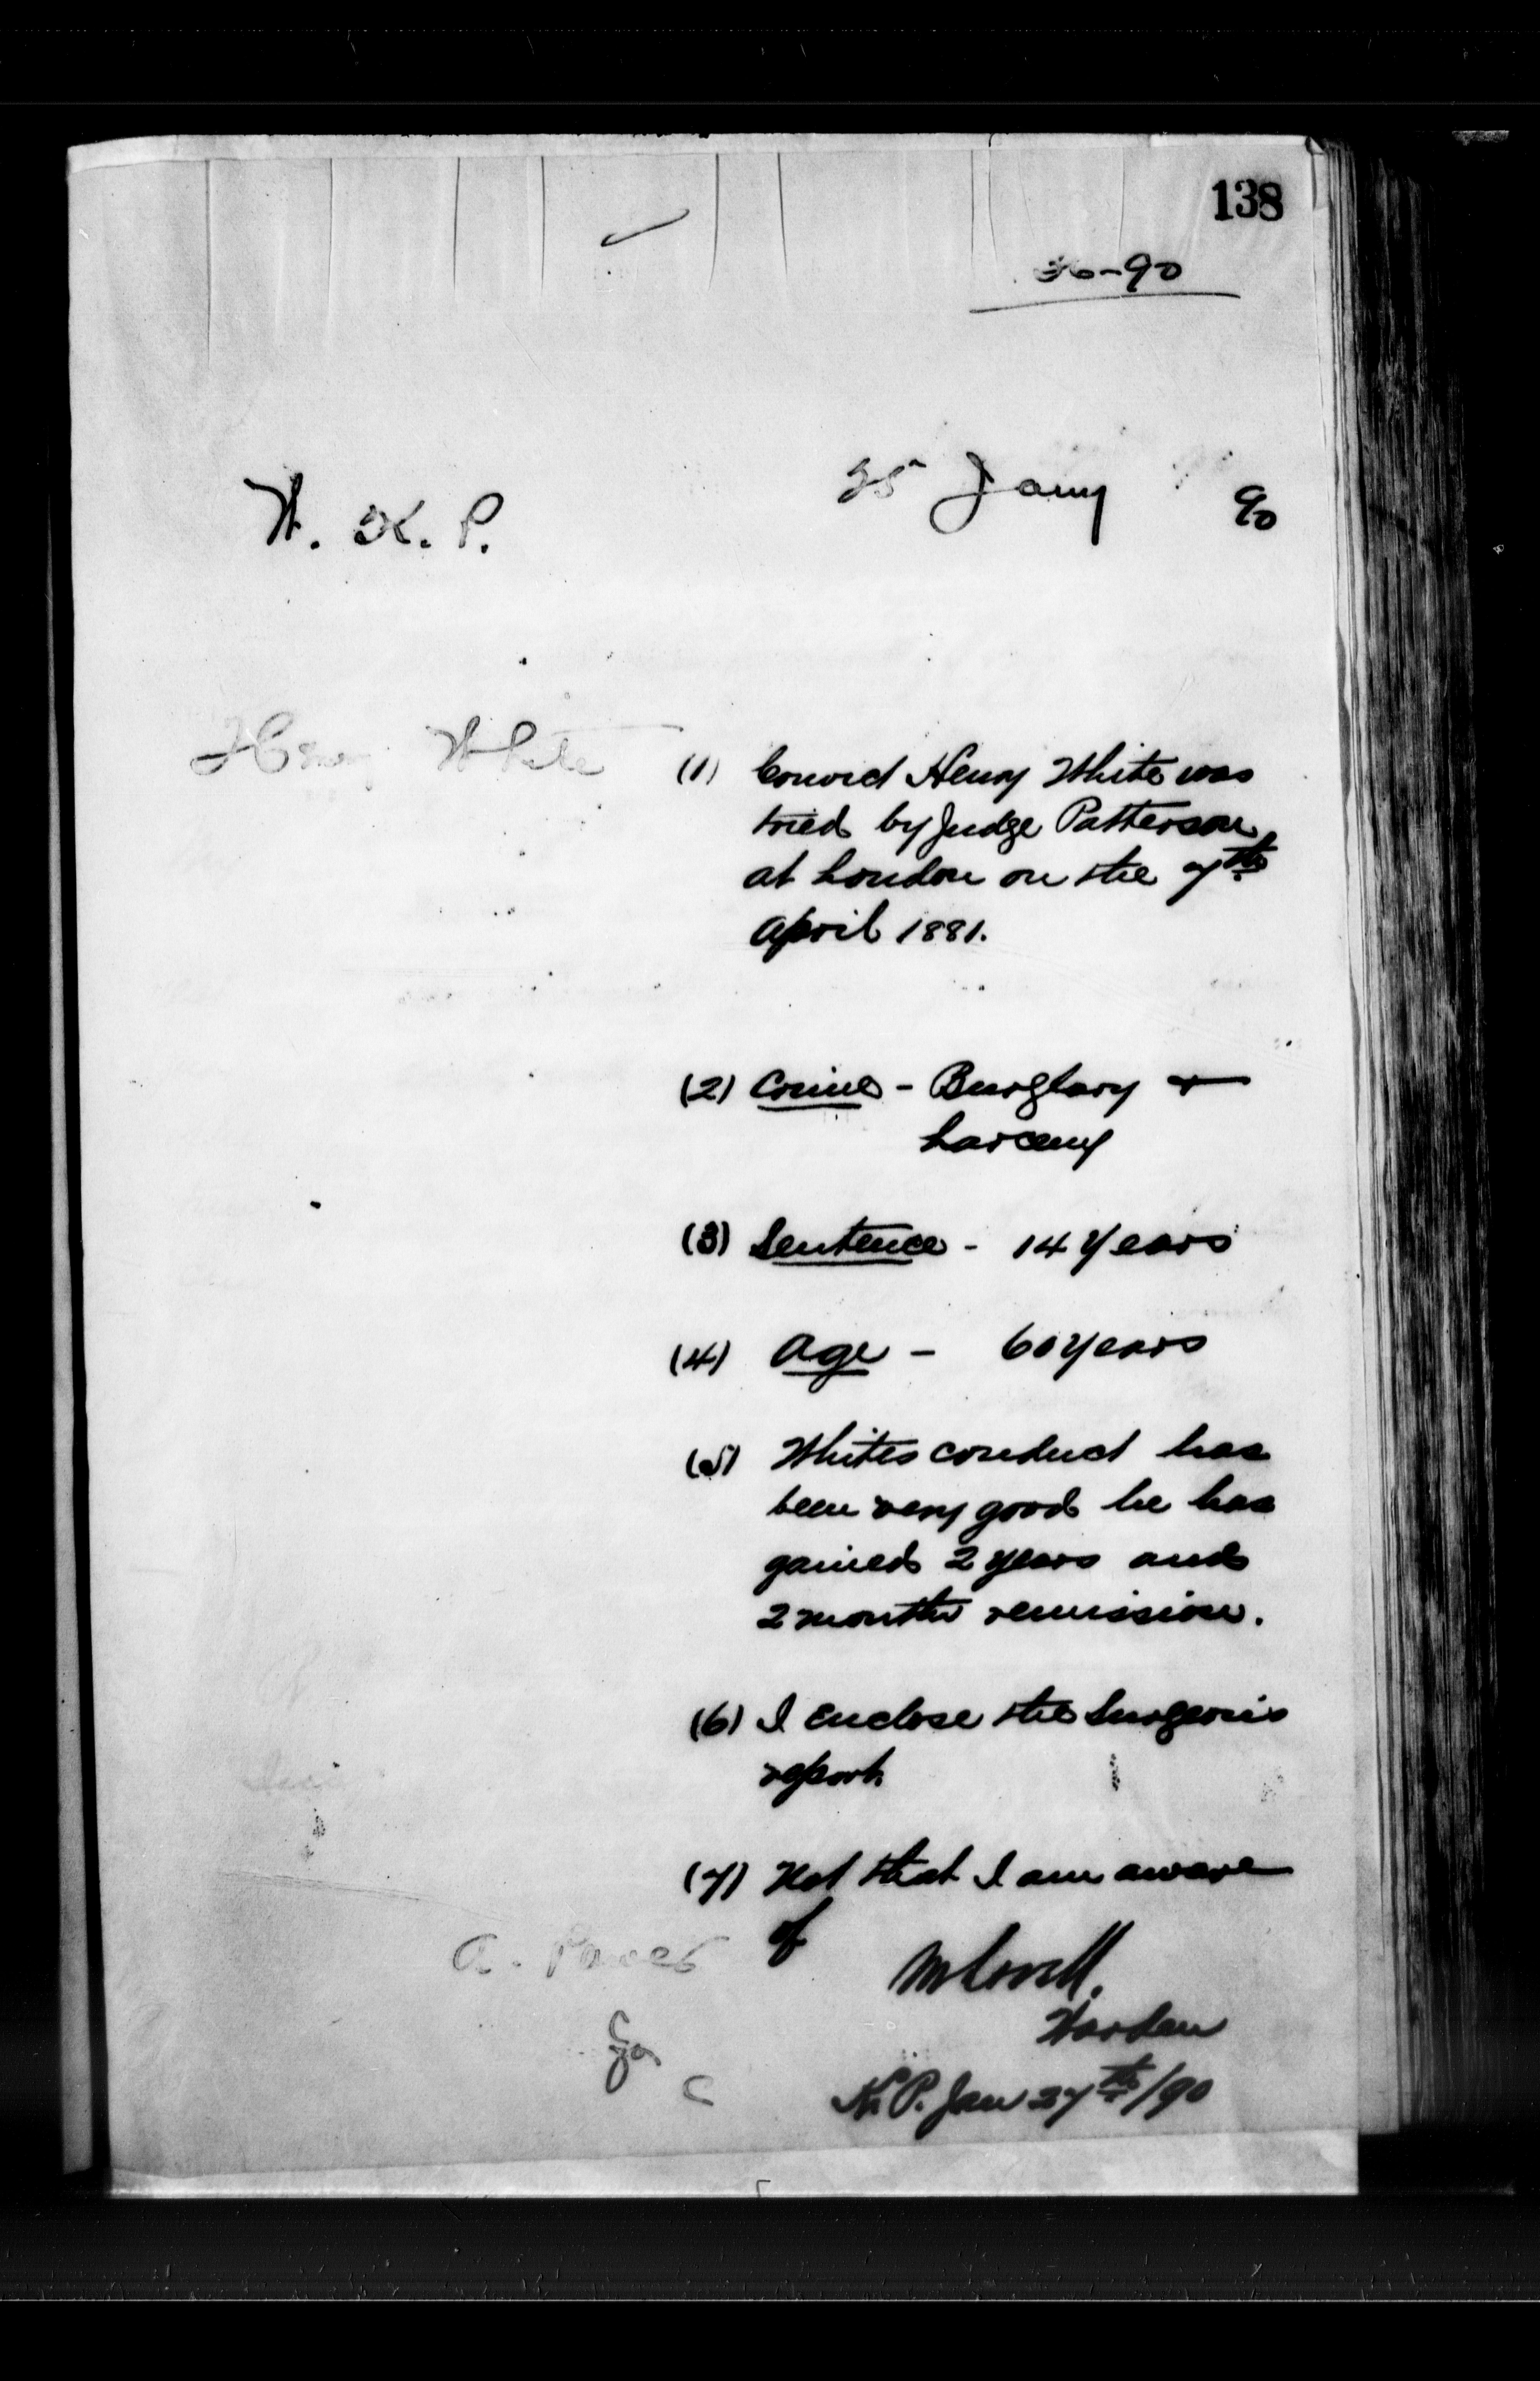 138
36-90
25 Jany 90
W. K. P.
Henry White
(1) Convict Henry White was
tried by Judge Patterson
at London on the 7th
April 1881.
(2) Crime - Burglary &
Larceny
(3) Sentence - 14 Years
(4) Age - 60 Years
(5) Whites conduct has
been very good he has
gained 2 years and
2 months remission.
(6) I enclose the Surgeon's
report
(7) Not that I am aware
of
A. Power
M Lavell.
Warden
K. P. Jan 27th/90